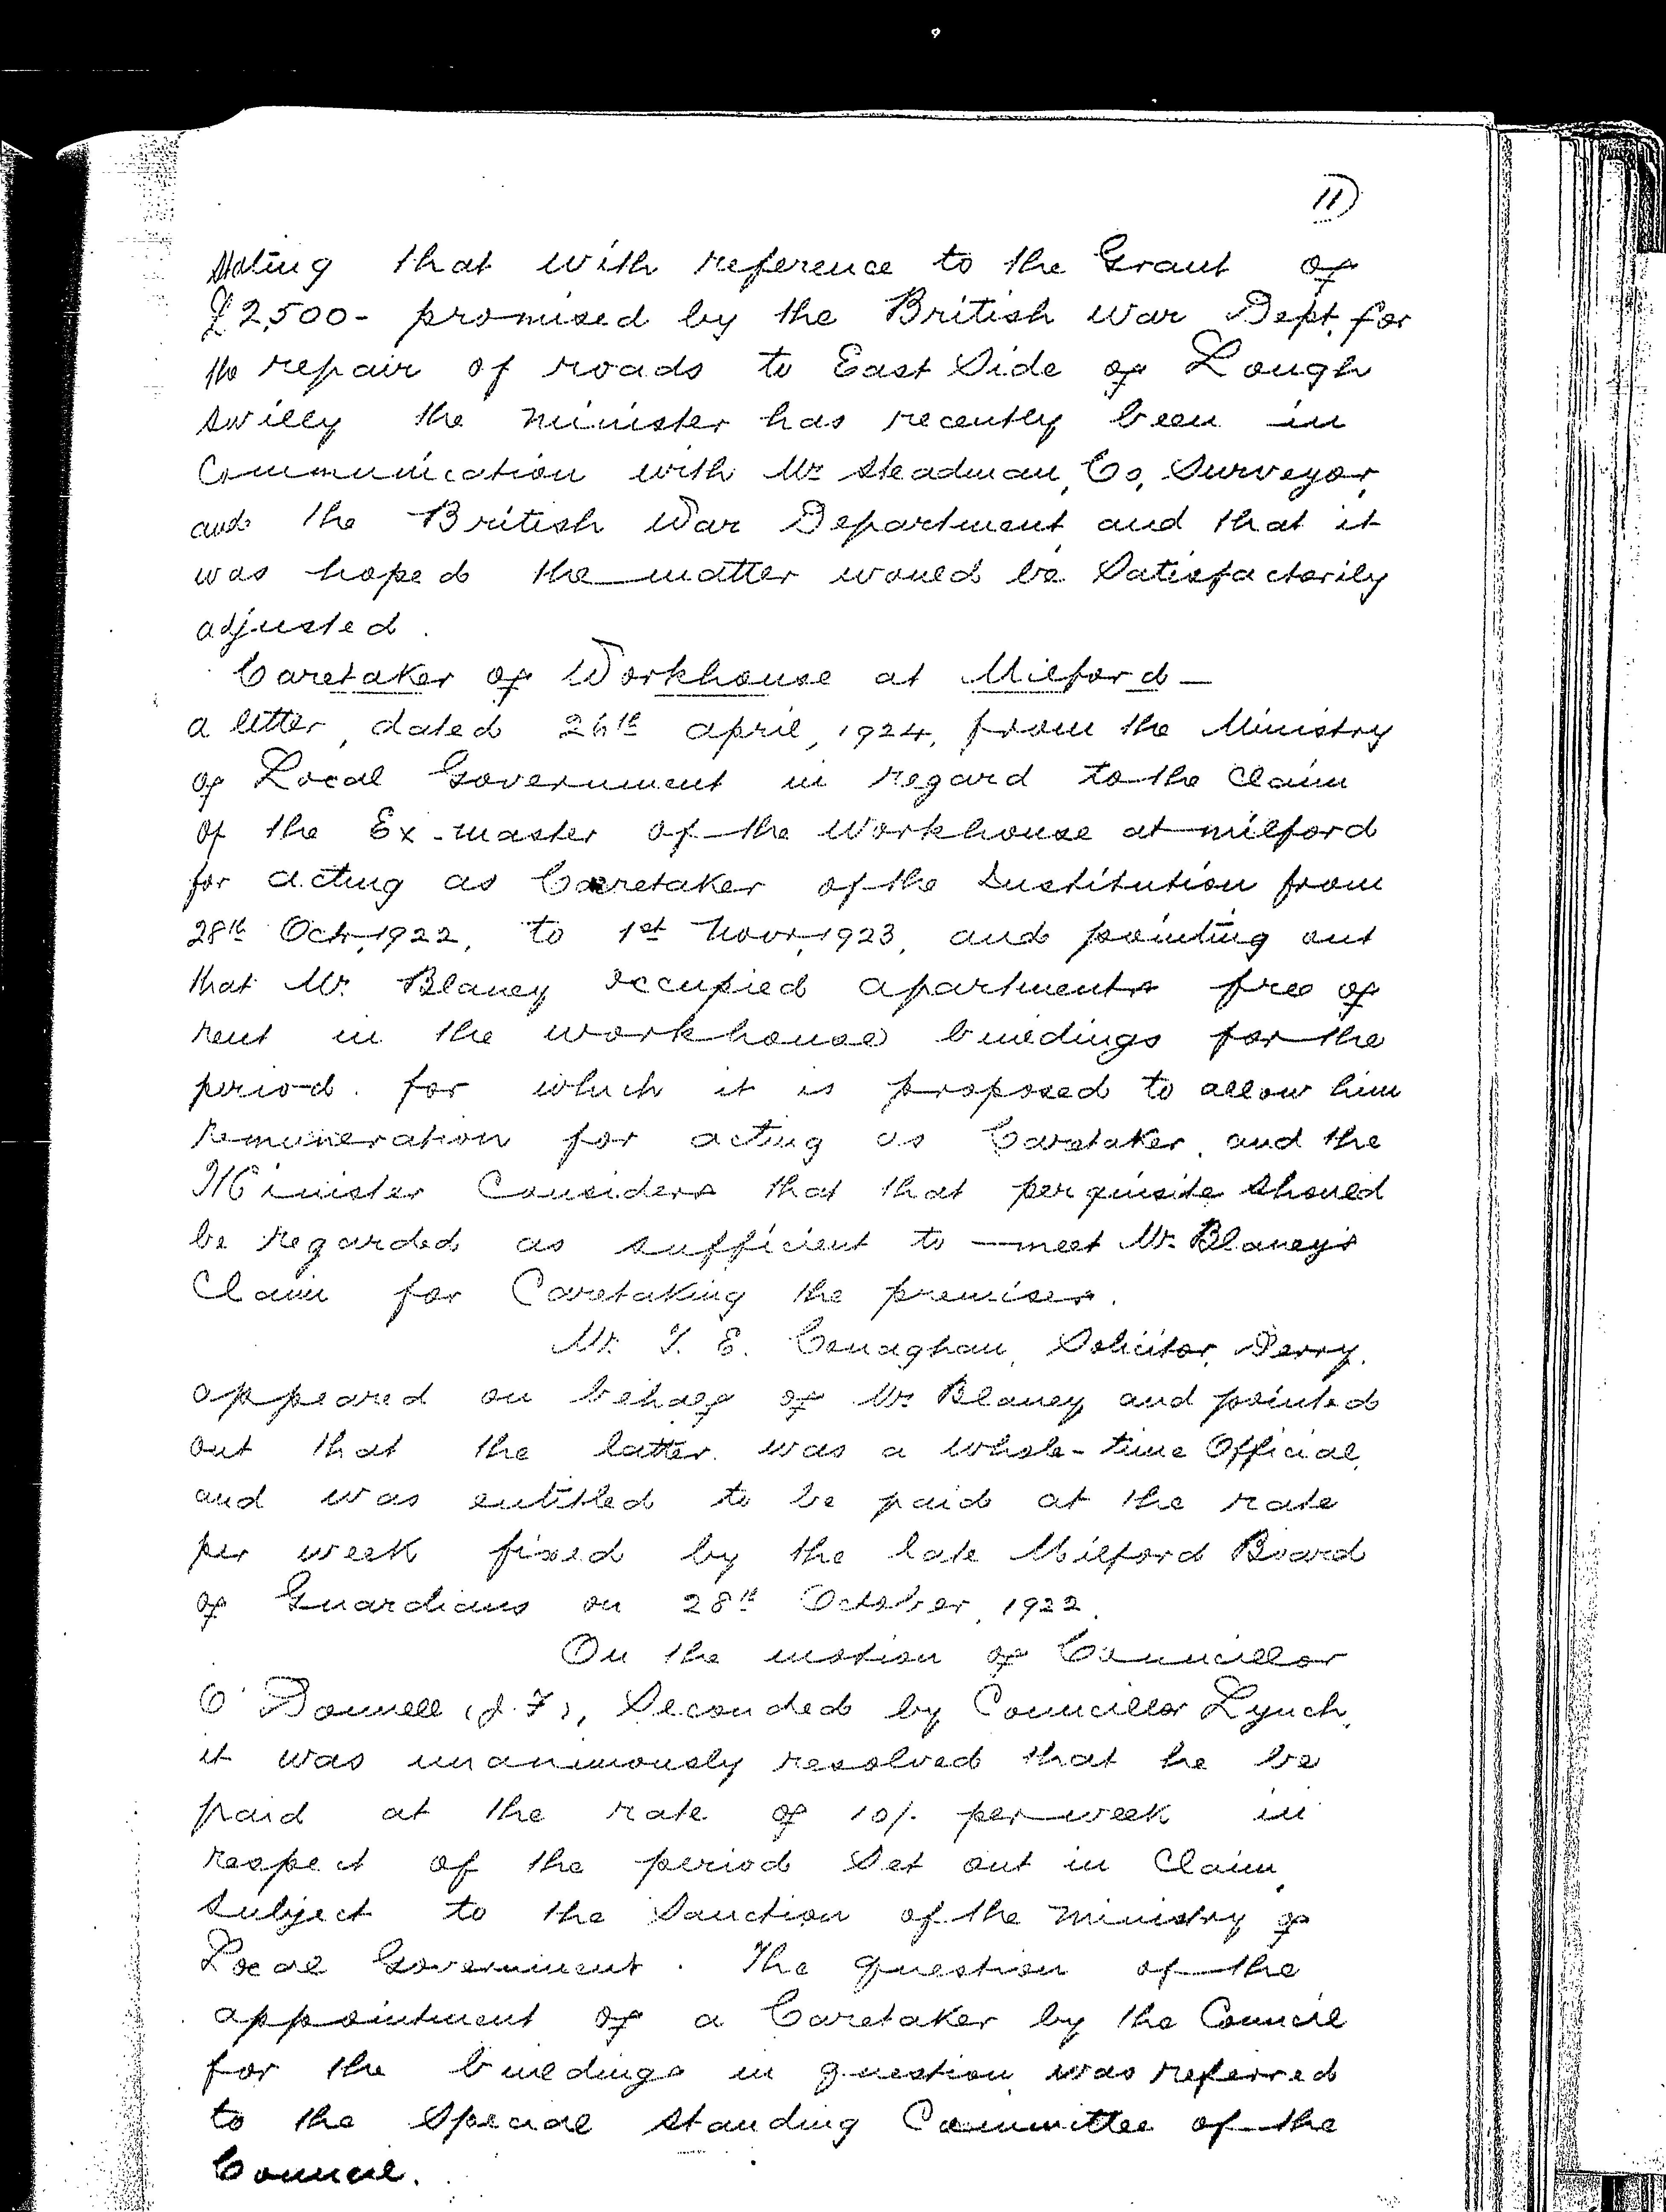 11)
stating that with reference to the Grant of
£2,500- promised by the British War Dept. for
the repair of roads to East Side of Lough
Swilly the Minister has recently been in
Communication with Mr Steadman, Co, Surveyor,
and the British War Department and that it
was hoped the matter would be Satisfactorily
adjusted.
Caretaker of Workhouse at Milford -
a letter, dated 26th april, 1924, from the Ministry
of Local Government in regard to the Claim
of the Ex-master of the Workhouse at milford
for acting as Caretaker of the Institution from
28th Octr, 1922, to 1st Novr, 1923, and pointing out
that Mr. Blaney occupied apartments free of
rent in the workhouse buildings for the
period. for which it is proposed to allow him
remuneration for acting as Caretaker, and the
Minister Considers that that perquisite should
be regarded as sufficient to meet Mr. Blaney's
Claim for Caretaking the premises.
Mr. T. E. Conaghan, Solicitor, Derry,
appeared on behalf of Mr Blaney and pointed
out that the latter was a whole-time Official,
and was entitled to be paid at the rate
per week fixed by the late Milford Board
of Guardians on 28th October, 1922.
On the motion of Councillor
O'Donnell (J.F), Seconded by Councillor Lynch,
it was unanimously resolved that he be
paid at the rate of 10/. per week in
respect of the period Set out in Claim,
subject to the Sanction of the ministry of
Local Government. The question of the
appointment of a Caretaker by the Council
for the buildings in question was referred
to the Special standing Committee of the
Council.